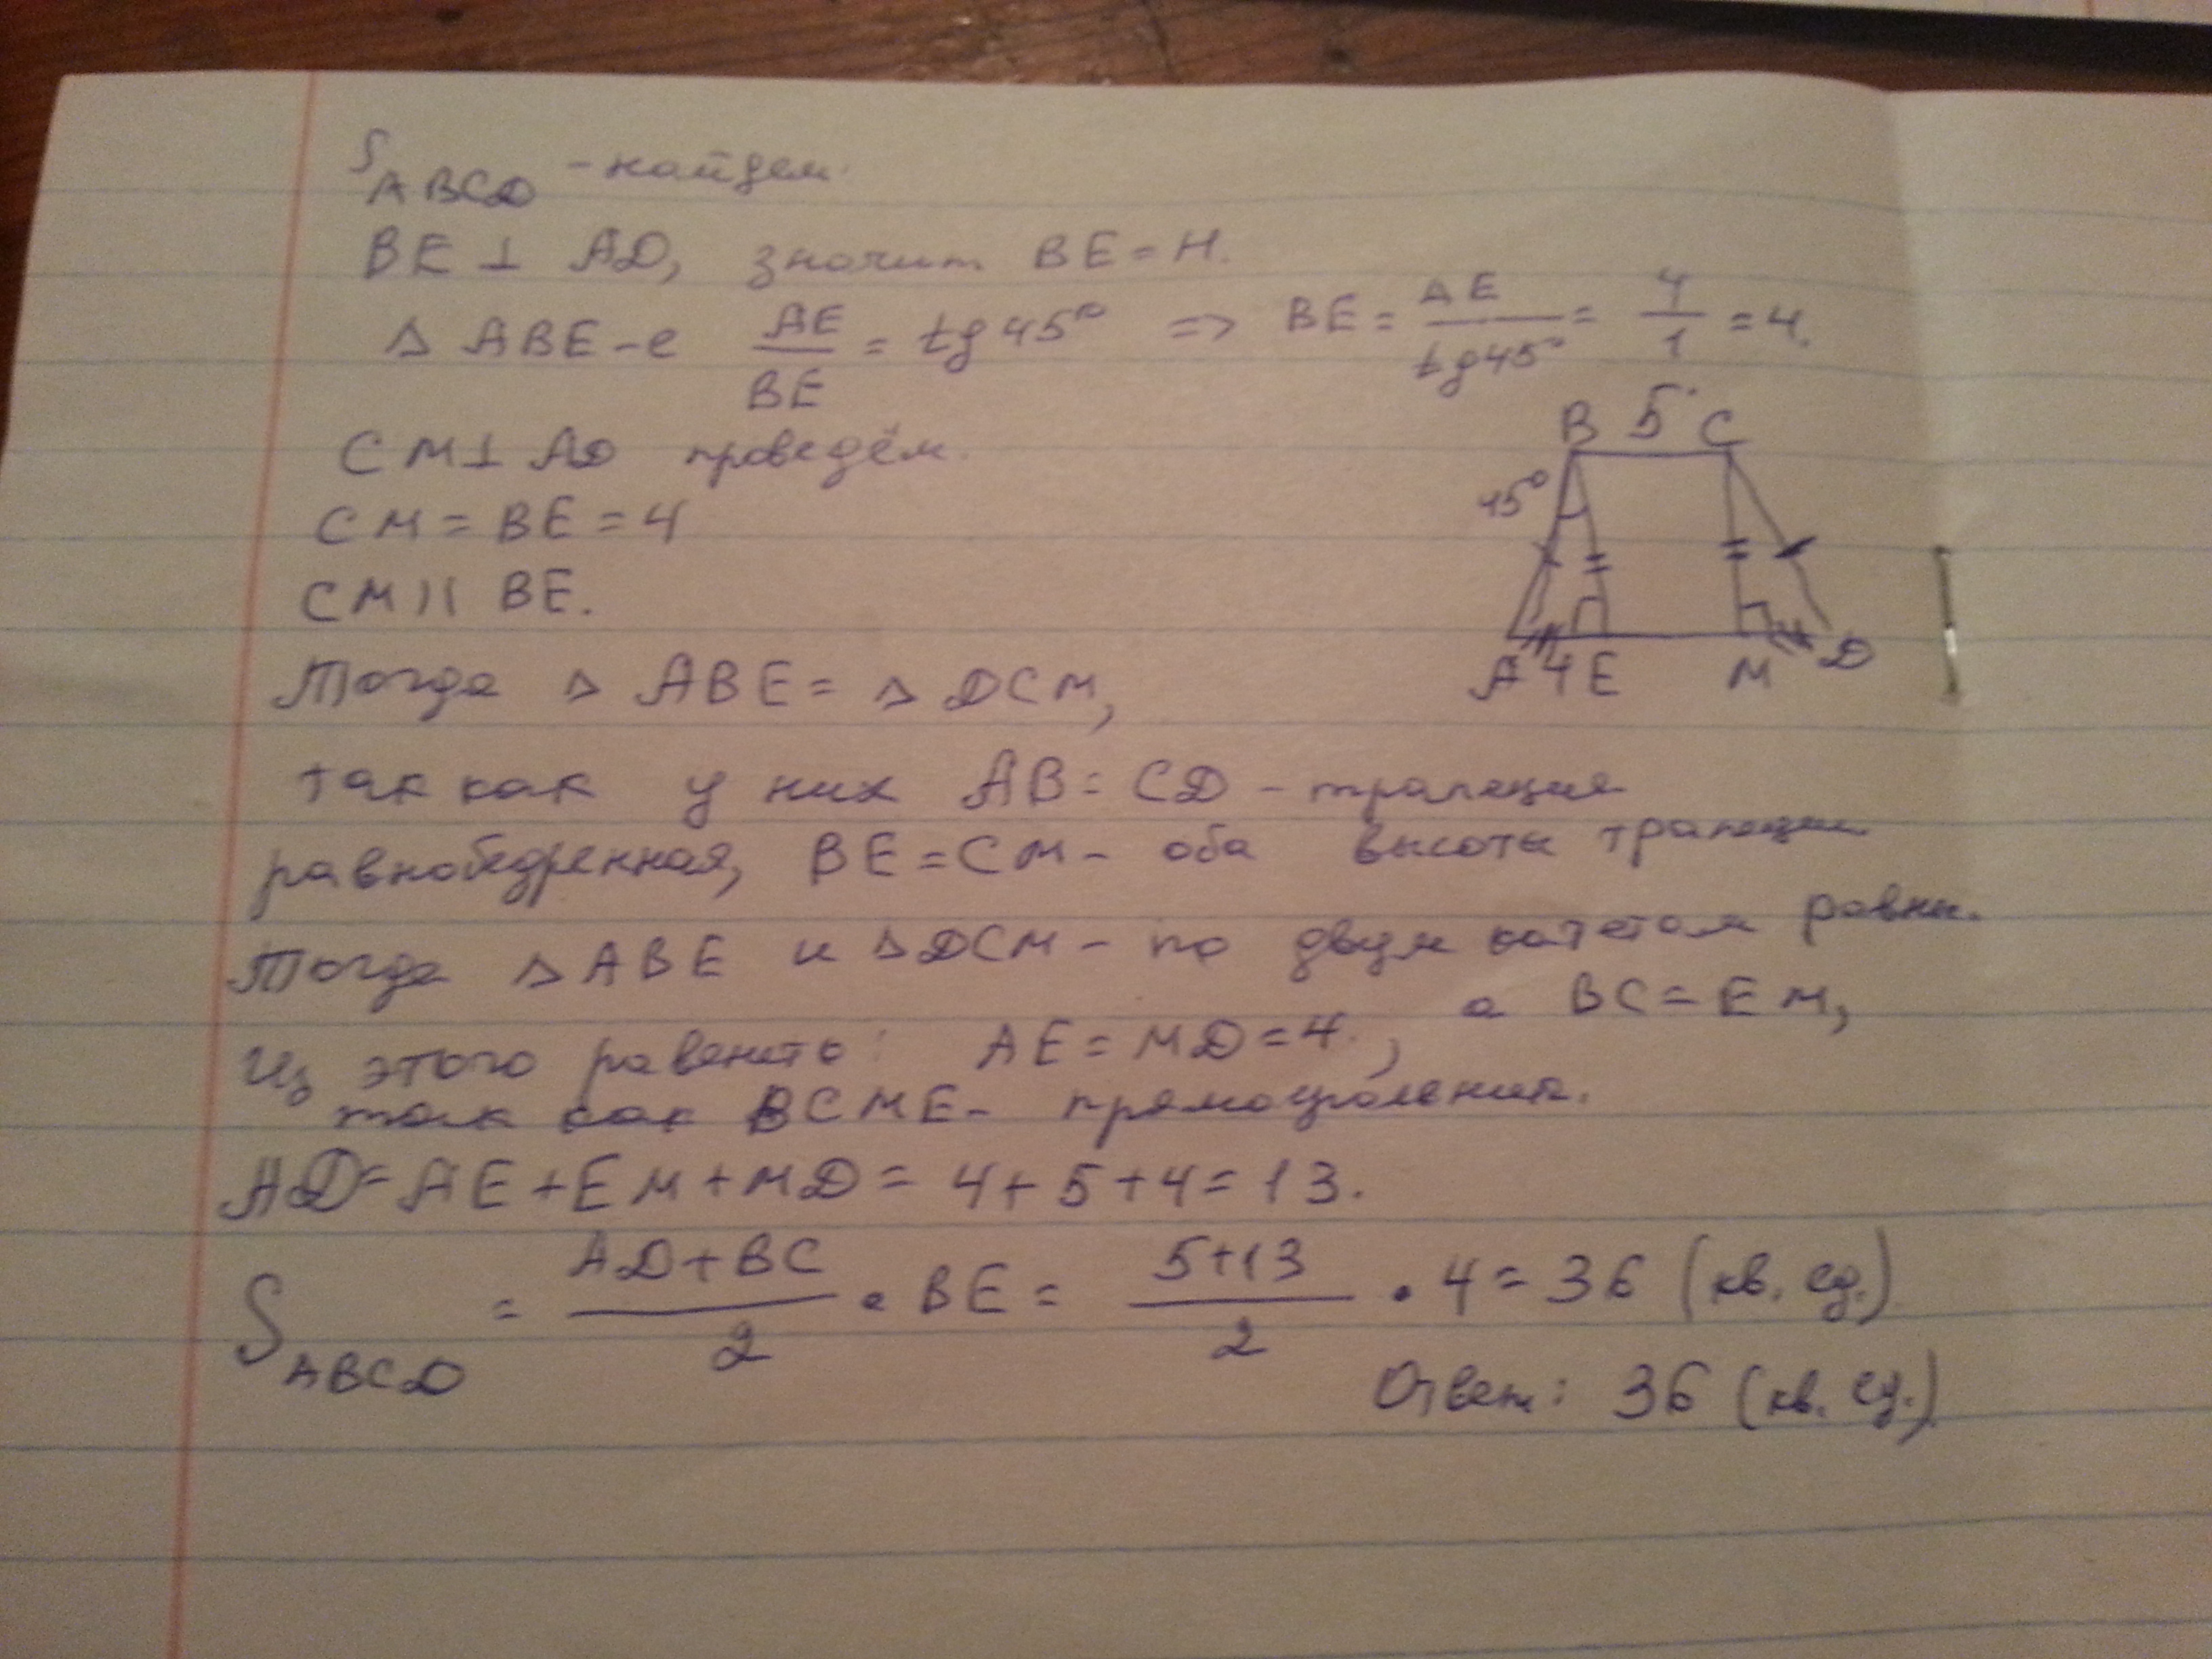 S ABCD - найдем.
BE ⊥ AD, значит BE = H.
△ ABE-е AE/BE = tg 45° => BE = AE/tg45° = 4/1 = 4.
CM ⊥ AD проведём.
CM = BE = 4
CM || BE.
B 5 C
45°
A 4 E M 4 D
Тогда △ ABE = △ DCM,
так как у них AB = CD - трапеция
равнобедренная, BE = CM - оба высоты трапеции
Тогда △ ABE и △ DCM - по двум катетам равны.
Из этого равенств: AE = MD = 4, а BC = EM,
так как BCME - прямоугольник.
AD = AE + EM + MD = 4 + 5 + 4 = 13.
S ABCD = (AD + BC)/2 • BE = (5+13)/2 • 4 = 36 (кв. ед.)
Ответ: 36 (кв. ед.)